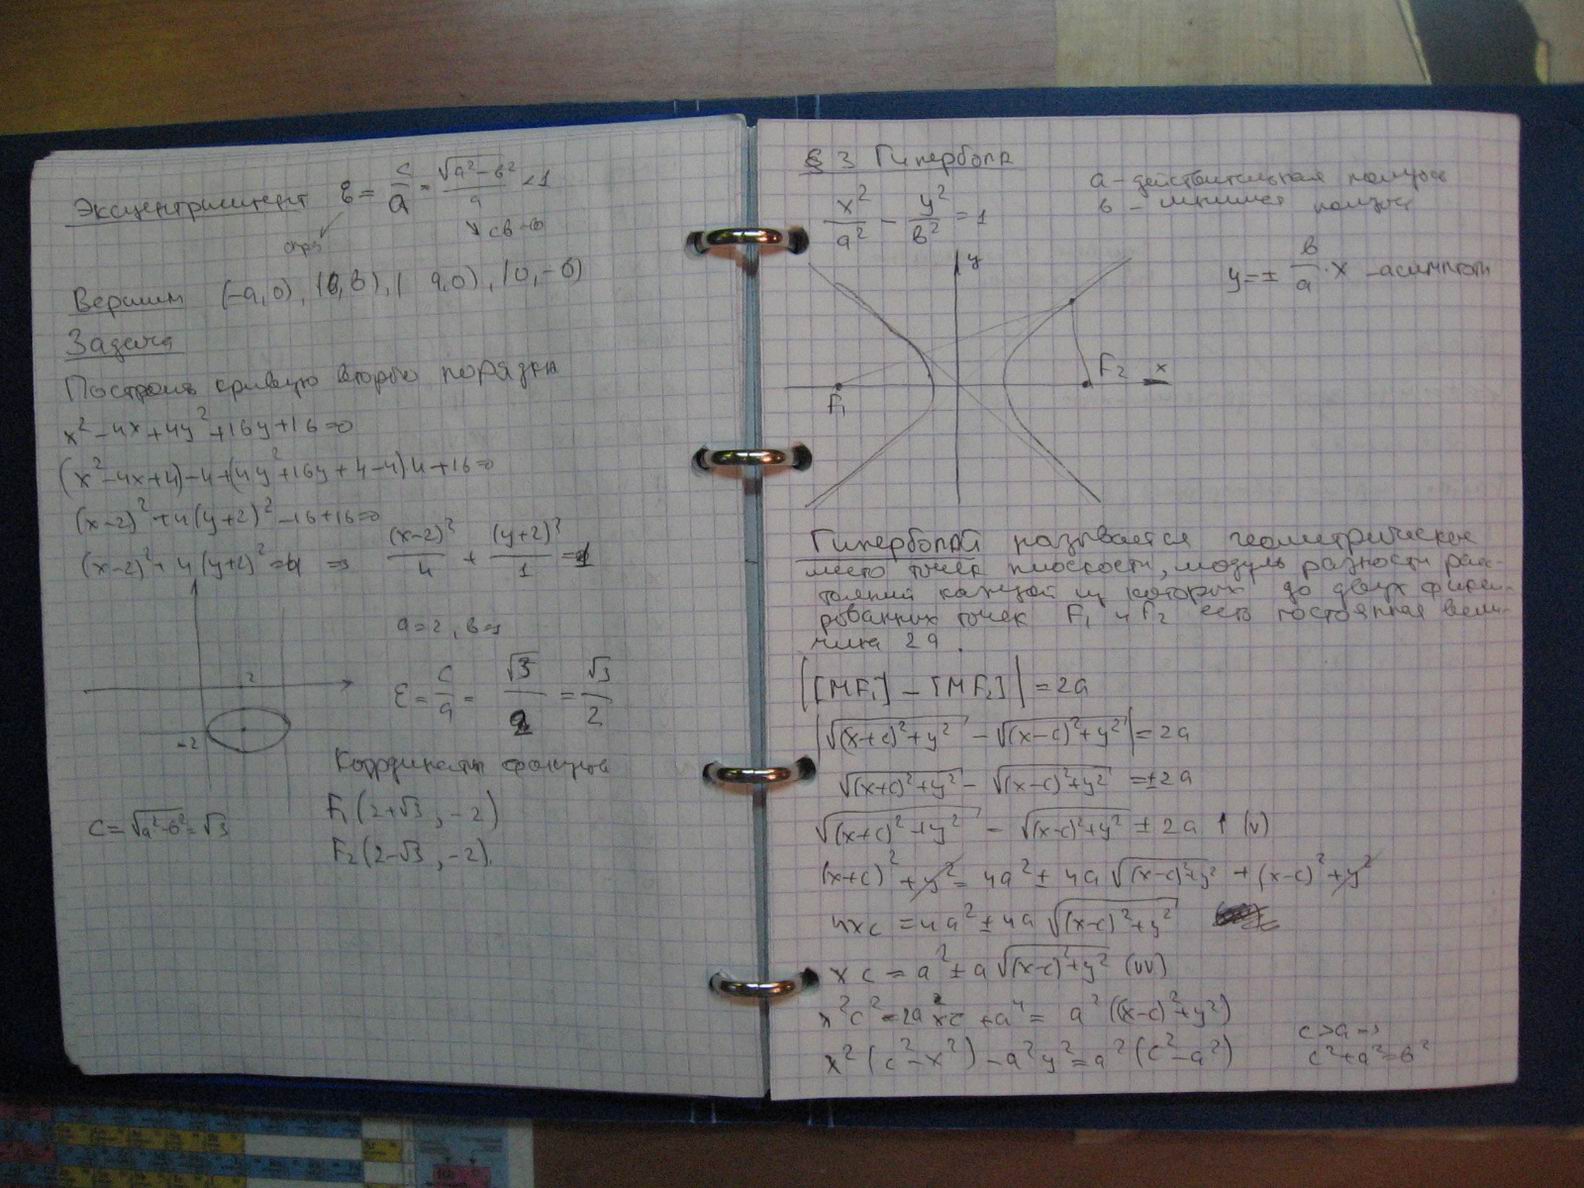 Эксцентриситет ε = c/a = √(a²-b²)/a < 1
Вершин (-a,0), (0,b), (a,0), (0,-b)
Задача
Построить кривую второго порядка
x²-4x+4y²+16y+16=0
(x²-4x+4)-4+(4y²+16y+4-4)4+16=0
(x-2)²+4(y+2)²-16+16=0
(x-2)²+4(y+2)²=4 ⇒ (x-2)²/4 + (y+2)²/1 = 1
a=2, b=1
2
ε = c/a = √3/2 = √3/2
-2
Координаты фокусов
F₁(2+√3, -2)
c=√(a²-b²)=√3
F₂(2-√3, -2).
§ 3 Гипербола
a - действительная полуось
b - мнимая полуось
x²/a² - y²/b² = 1
y = ± b/a · x - асимптоты
y
F₂ x
F₁
Гиперболой называется геометрическое
место точек плоскости, модуль разности рас-
тояний каждой из которых до двух фикси-
рованных точек F₁ и F₂ есть постоянная вели-
чина 2a.
|[MF₁] - [MF₂]| = 2a
|√((x+c)²+y²) - √((x-c)²+y²)| = 2a
√((x+c)²+y²) - √((x-c)²+y²) = ±2a
√((x+c)²+y²) - √((x-c)²+y²) ± 2a ↑ (v)
(x+c)²+y² = 4a² ± 4a√((x-c)²+y²) + (x-c)²+y²
4xc = 4a² ± 4a√((x-c)²+y²)
xc = a² ± a√((x-c)²+y²) (vv)
x²c² - 2a²xc + a⁴ = a²((x-c)²+y²)
x²(c²-x²) - a²y² = a²(c²-a²)
c>a ⇒
c²+a²=b²